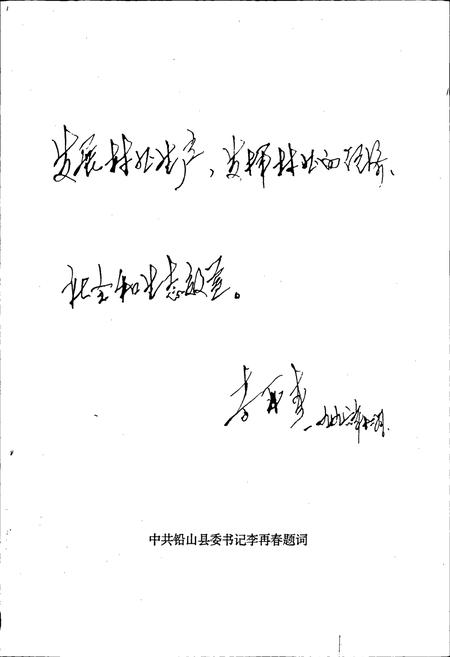 发展林业生产、发挥林业的经济、
社会和生态效益。
李再春
中共铅山县委书记李再春题词